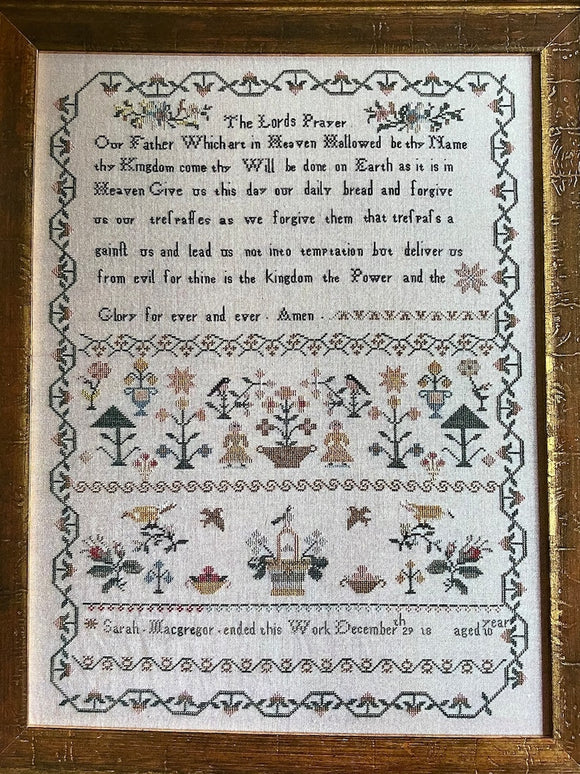 The Lords Prayer
Our Father Which art in Heaven Hallowed be thy Name
thy Kingdom come thy Will be done on Earth as it is in
Heaven Give us this day our daily bread and forgive
us our treſpaſſes as we forgive them that treſpaſs a
gainſt us and lead us not into temptation but deliver us
from evil for thine is the Kingdom the Power and the
Glory for ever and ever · Amen ·
Sarah · Macgregor · ended this Work December 29th 18 aged 10 year